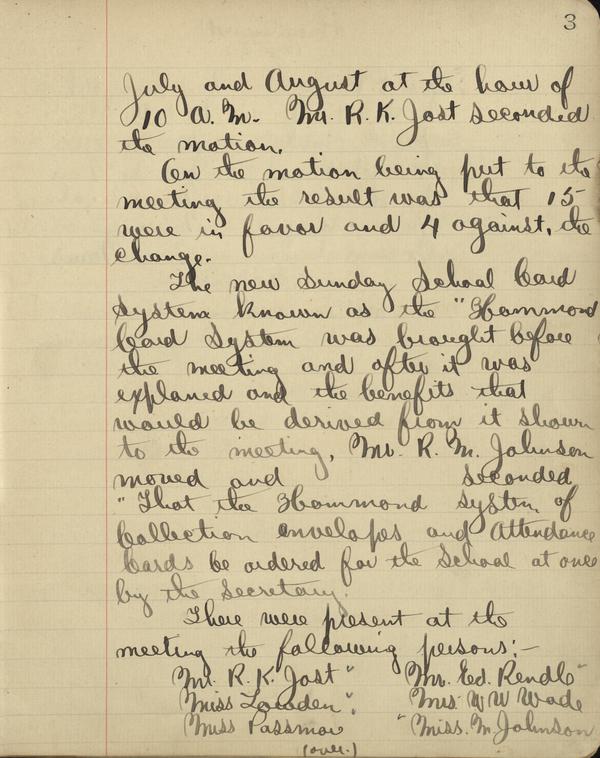 3
July and August at the hour of
10 A.M. Mr. R.K. Jost seconded
the motion.
On the motion being put to the
meeting the result was that 15
were in favor and 4 against, the
change.
The new Sunday School Card
System known as the "Hammond
Card System was brought before
the meeting and after it was
explaned and the benefits that
would be derived from it shown
to the meeting, Mr. R. M. Johnson
moved and seconded
"That the Hammond System of
Collection envelopes and Attendance
Cards be ordered for the School at once
by the Secretary.
There were present at the
meeting the following persons:-
Mr. R.K. Jost " Mr. Ed. Rendle "
Miss Lowden ". Mrs. W W Wade
Miss Passmore " Miss. M. Johnson
(over.)